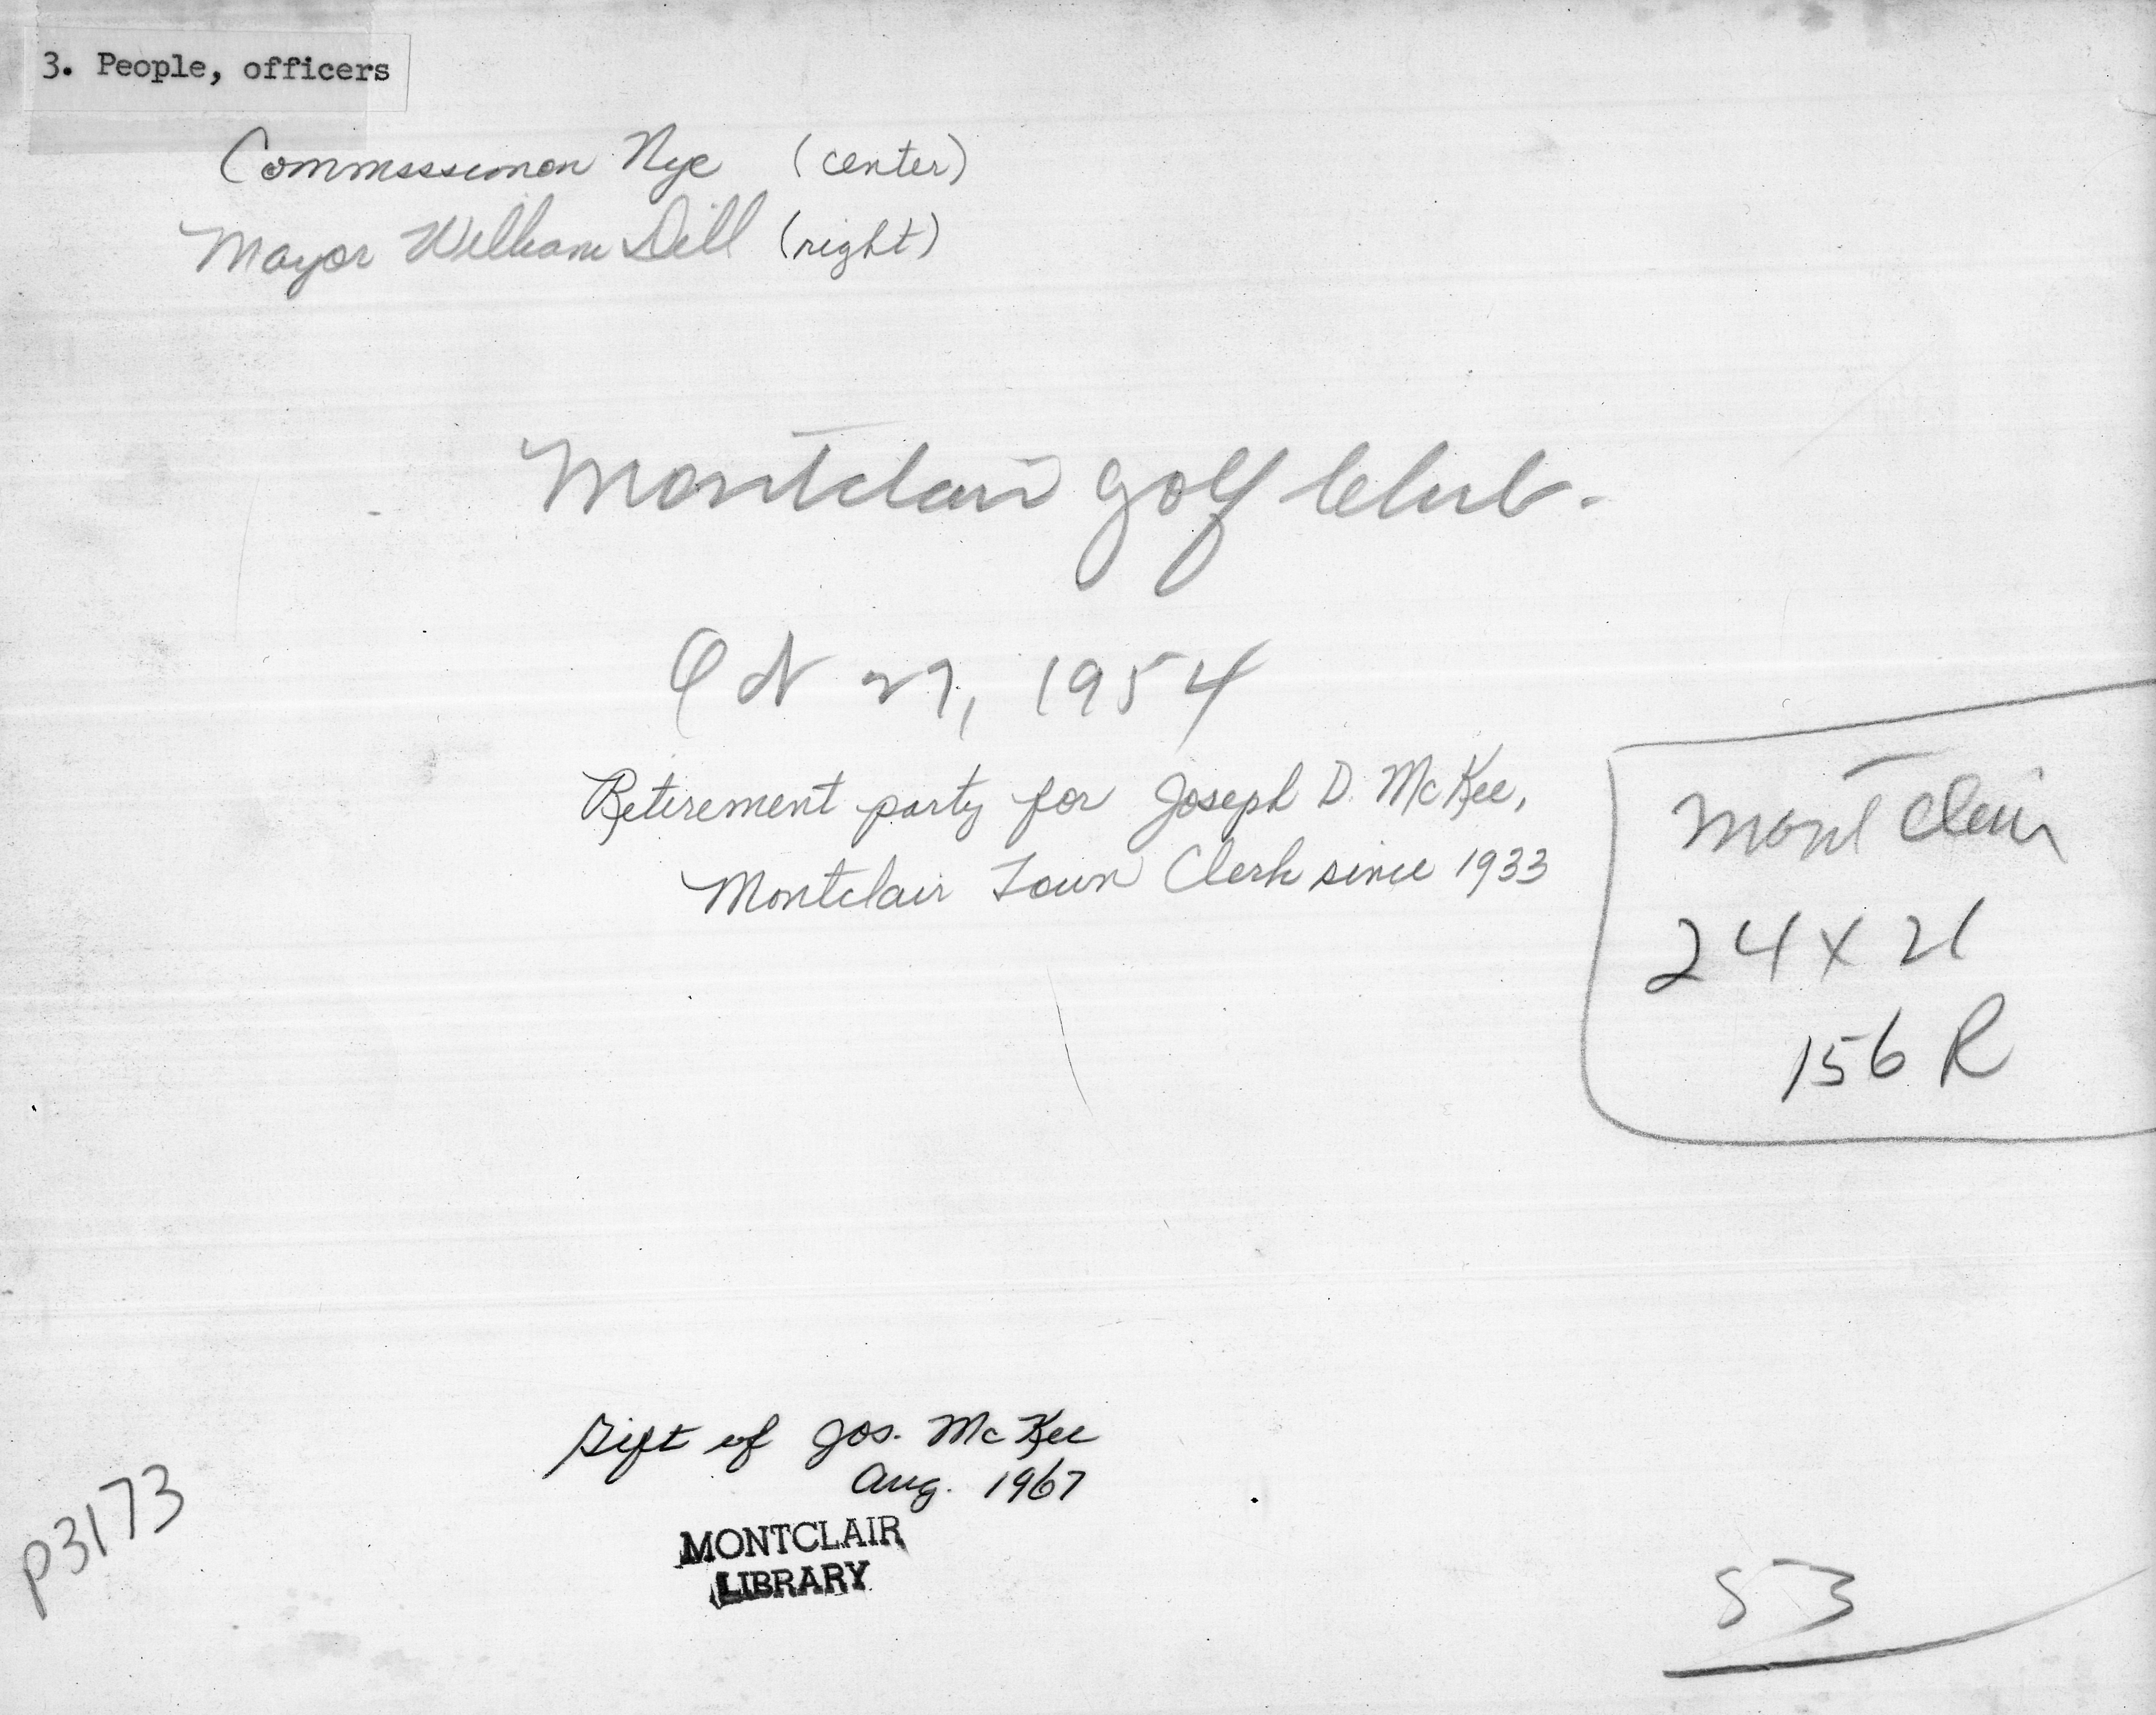 3. People, officers
Commissioner Nye (center)
Mayor William Dill (right)
Montclair Golf Club.
Oct 27, 1954
Retirement party for Joseph D. McKee,
Montclair Town Clerk since 1933
Montclair
24 x 21
156 R
Gift of Jos. McKee
Aug. 1967
MONTCLAIR
LIBRARY
P3173
53